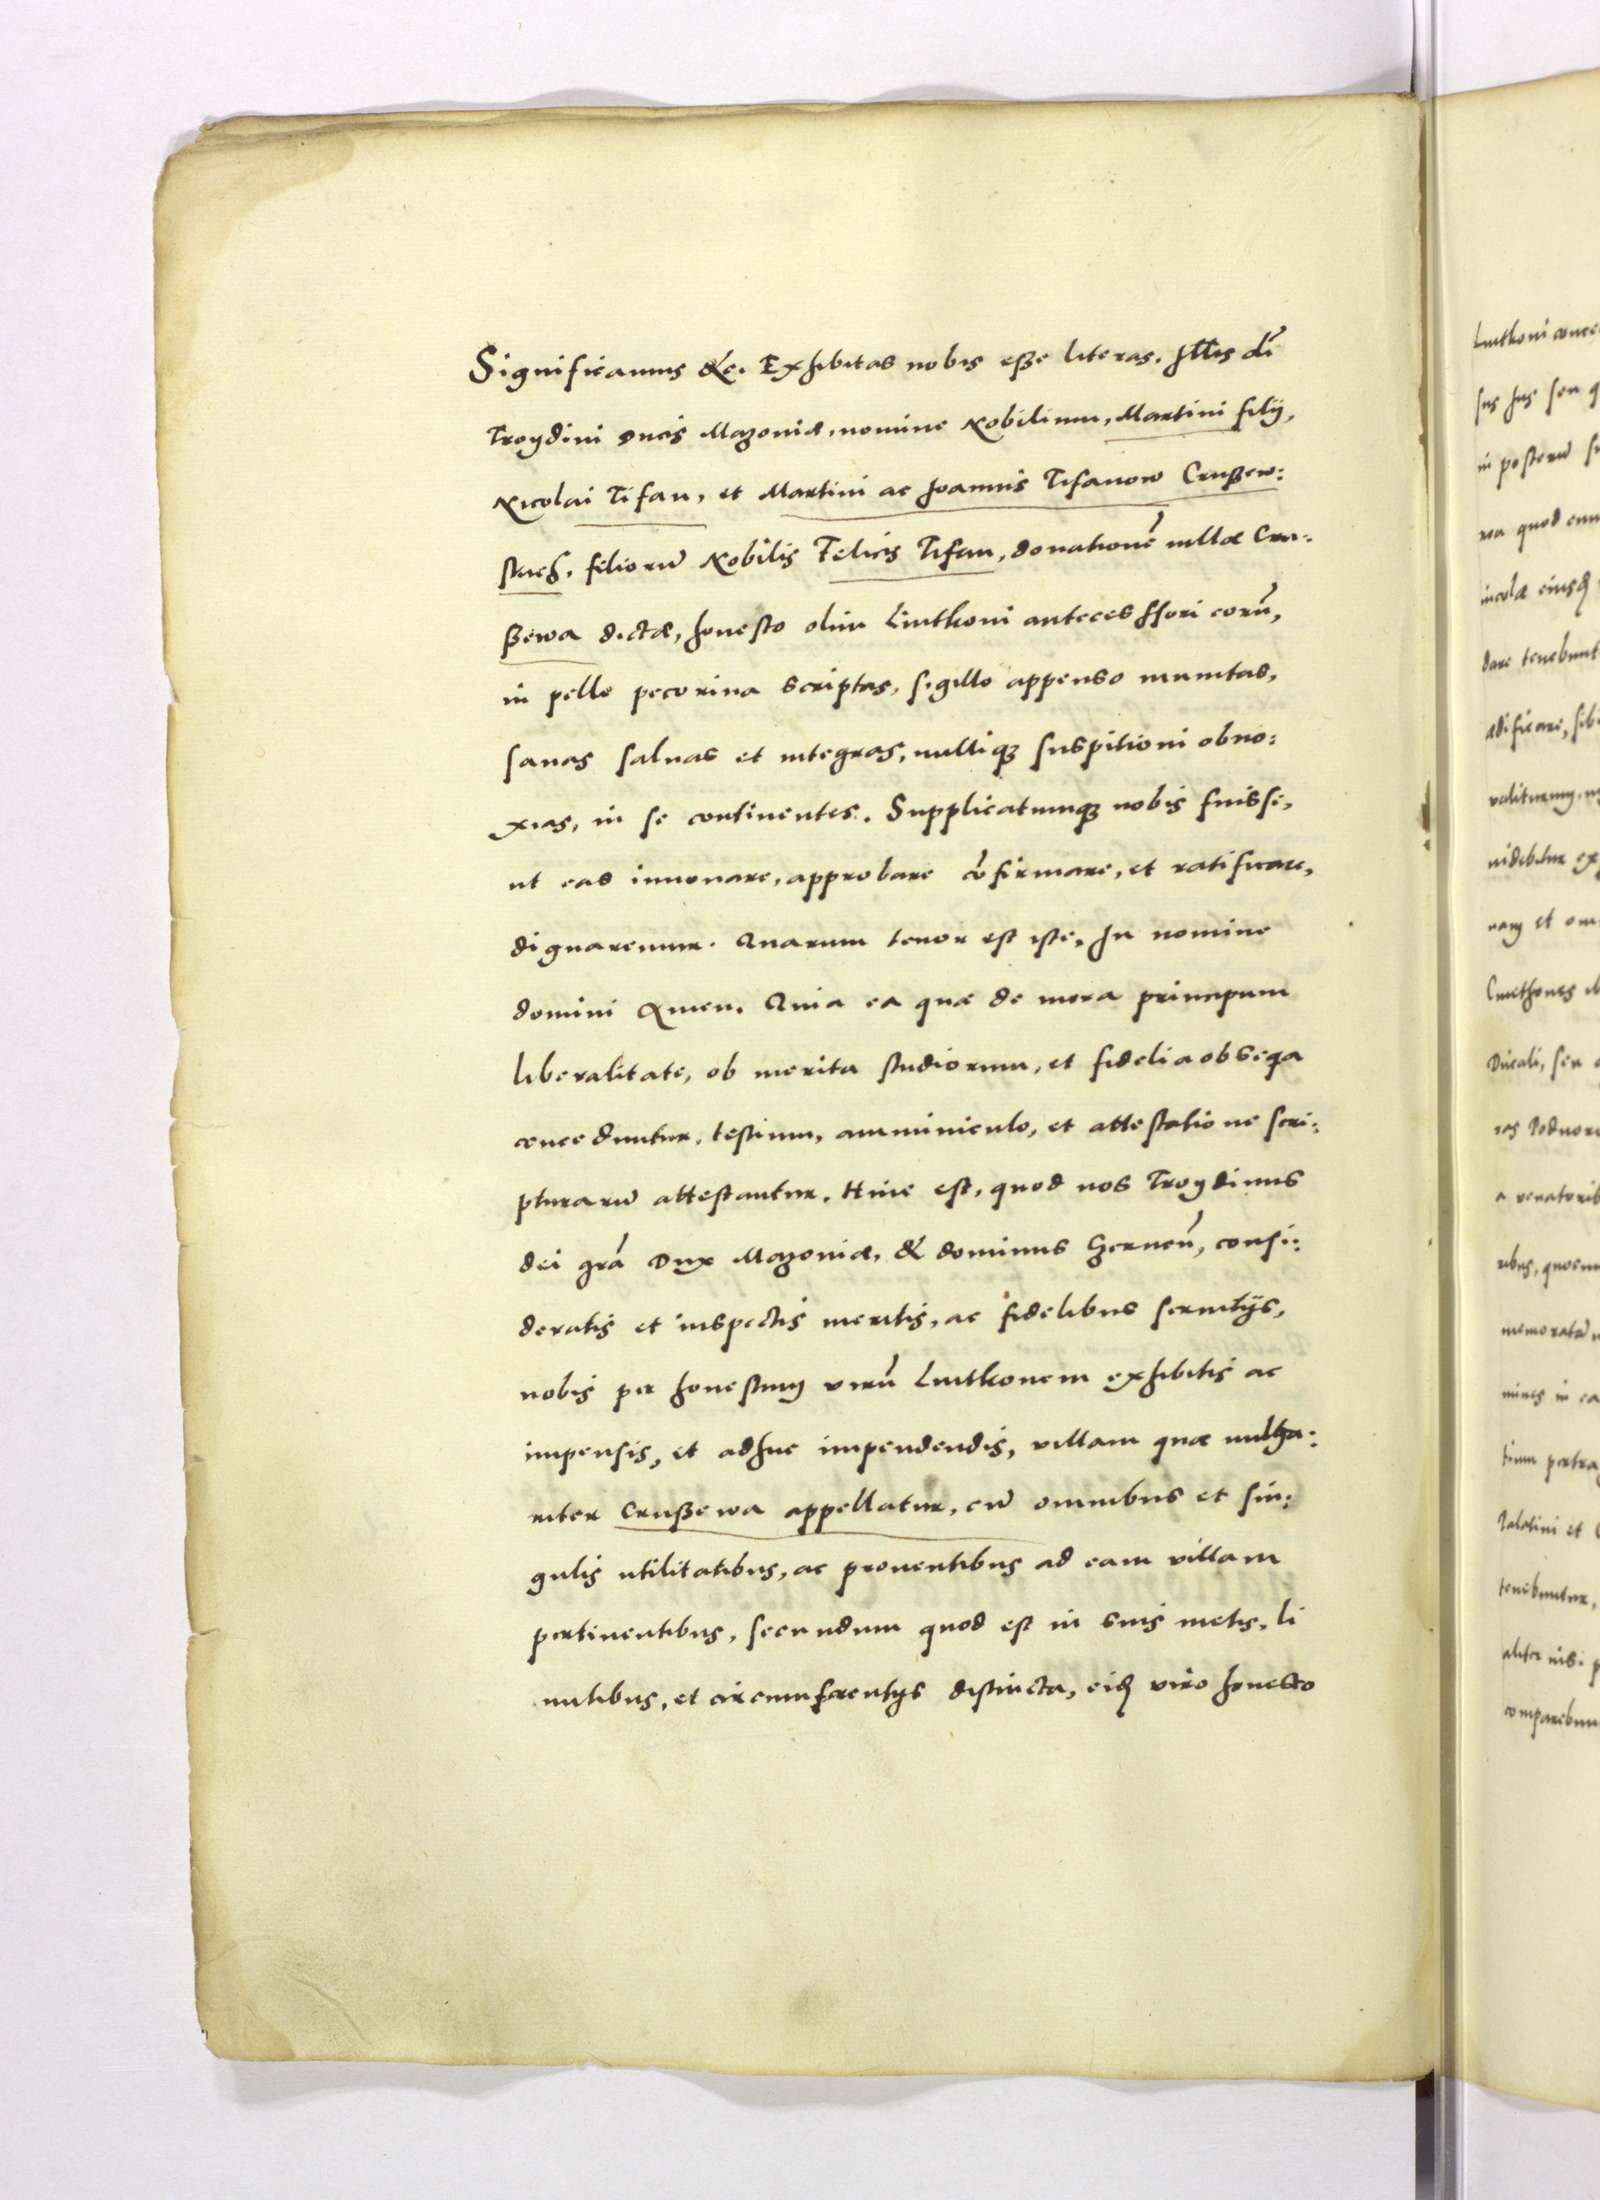 Significamus &c. Exhibitas nobis eße literas, Illis dni
Troydini Ducis Mazoniæ, nomine Nobilium, Martini filij,
Nicolai Tifan, et Martini ac Joannis Tifanow Crußew:
skich, filiorũ Nobilis Felicis Tifan, donationẽ uillæ Cru:
ßewa dictæ, honesto olim Liutkoni antecessori eorũ,
in pelle pecorina scriptas, sigillo appenso munitas,
sanas saluas et integras, nulliq3 suspitioni obno:
xias, in se continentes. Supplicatumq3 nobis fuisse,
ut eas innouare, approbare cõfirmare, et ratificare,
dignaremur. Quarum tenor est iste, In nomine
domini Amen. Quia ea quæ de mera principum
liberalitate, ob merita studiorum, et fidelia obseqa
conceduntur, testium, amminiculo, et attestatione scri:
pturarũ attestantur. Hinc est, quod nos Troydinus
dei grã Dux Mazoniæ, & dominus Cernen̄, consi:
deratis et inspectis meritis, ac fidelibus seruitijs,
nobis per honestum virũ Liutkonem exhibitis ac
impensis, et adhuc impendendis, villam quæ uulga:
riter Crußewa appellatur, cũ omnibus et sin:
gulis utilitatibus, ac prouentibus ad eam villam
pertinentibus, secundum quod est in suis metis, li
mitibus, et circumferentijs distincta, eidẽ viro honesto
Liutkoni
sus
in posterũ
quod
incolæ
dare tenebunt
ædificare,
uidebitur
et
Cmethones
Ducali, seu
a venatorib
memoratũ
Palatini et
tenebuntur,
comparebun